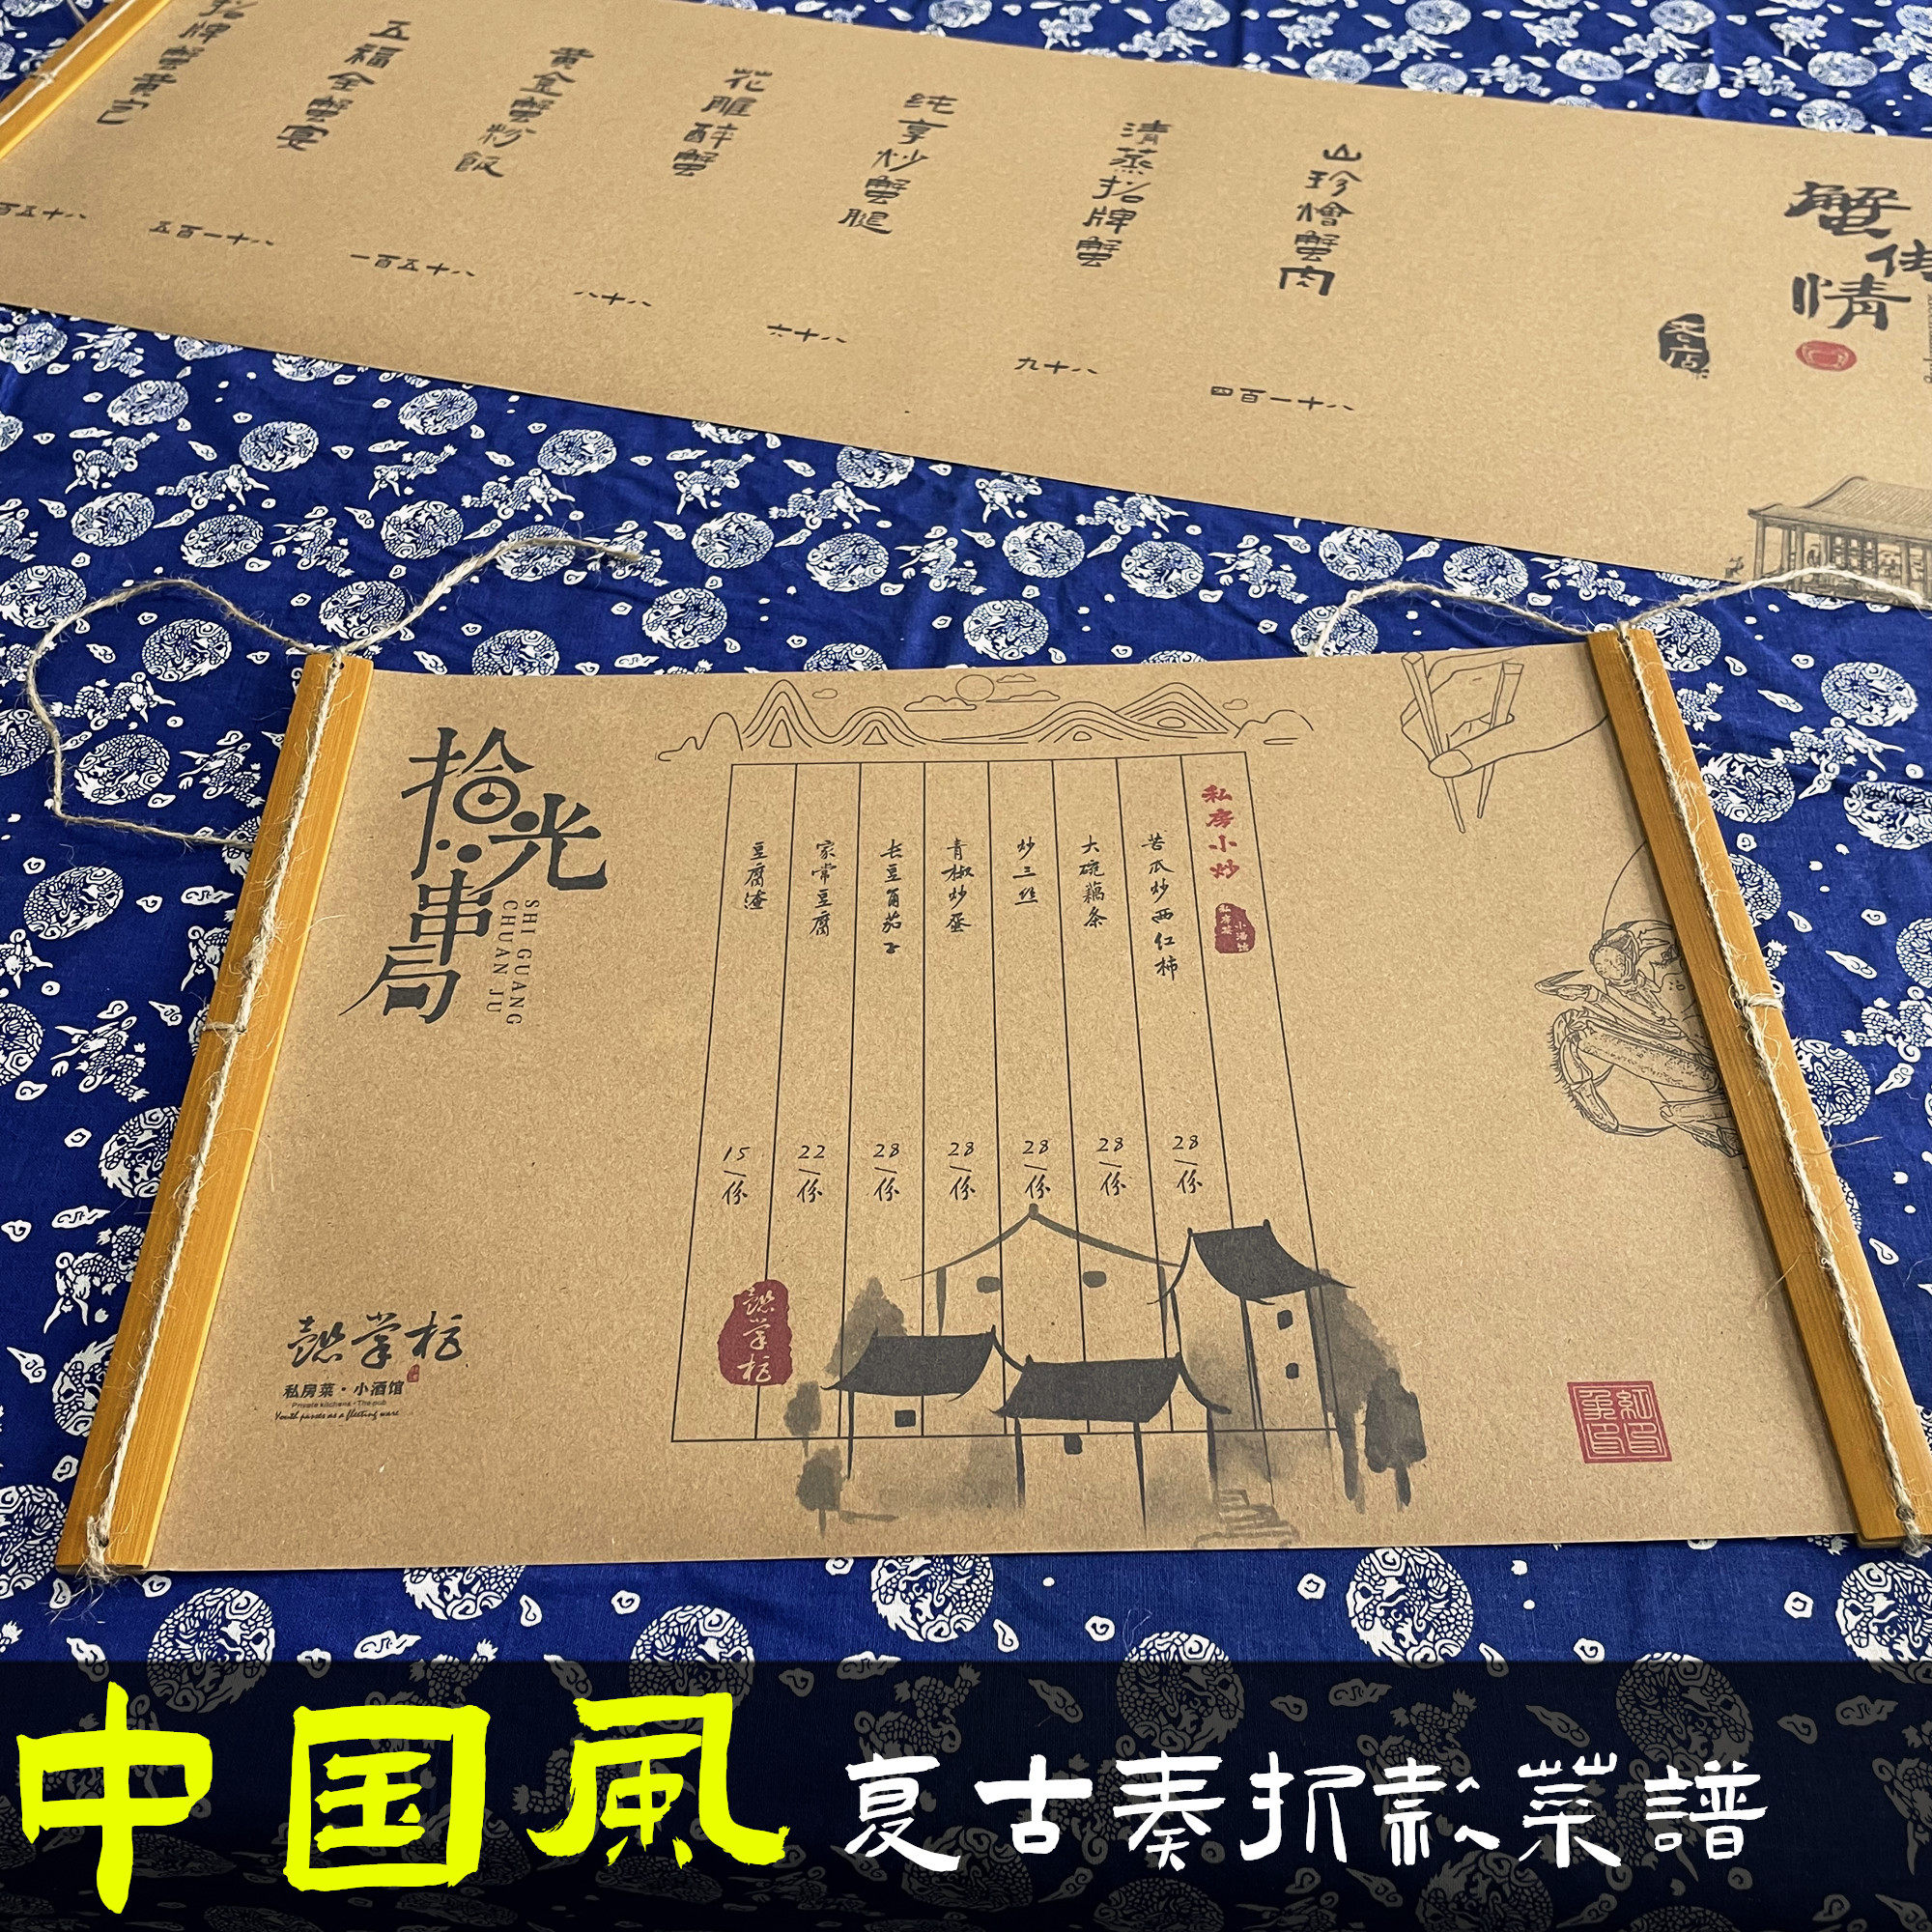 蟹
情
山珍燴蟹肉
四百一十八
清蒸招牌蟹
九十八
纯享炒蟹腿
六十八
花雕醉蟹
八十八
黄金蟹粉飯
一百五十八
五福全蟹宴
五百一十八
招牌蟹黄包
百五十八
拾光串局
SHI GUANG
CHUAN JU
私房小炒
苦瓜炒西红柿
28/份
大碗藕条
28/份
炒三丝
28/份
青椒炒蛋
28/份
长豆角茄子
28/份
家常豆腐
22/份
豆腐渣
15/份
懿掌柜
懿掌柜
私房菜·小酒馆
Private kitchens·The pub
Youth passes as a fleeting wave
中国風
复古奏折款菜譜